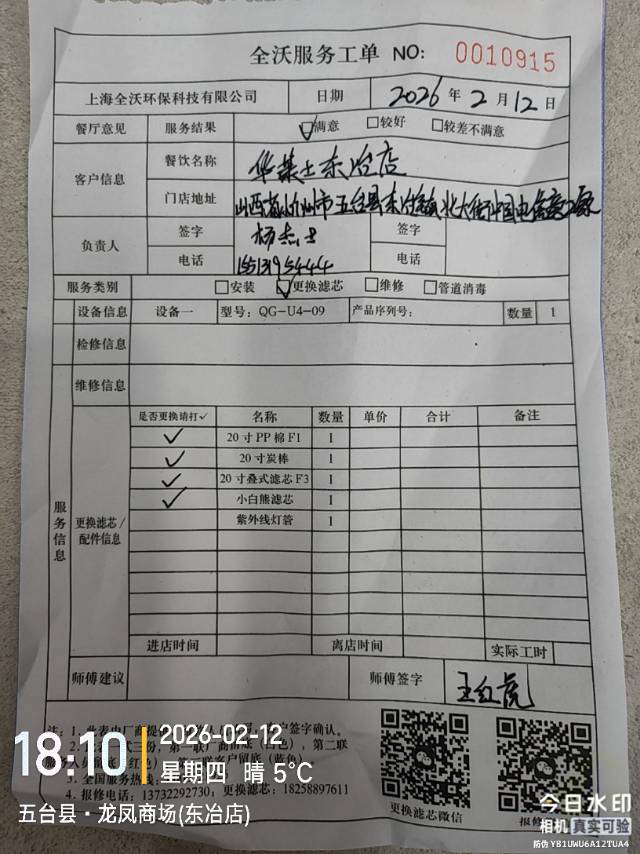 全沃服务工单 NO: 0010915
上海全沃环保科技有限公司 日期 2026年2月12日
餐厅意见 服务结果 满意 较好 较差不满意
客户信息 餐饮名称 华莱士东冶店
门店地址 山西省忻州市五台县东冶镇北大街中国电信
负责人 签字 杨志 签字
电话 15513195444 电话
服务类别 安装 更换滤芯 维修 管道消毒
设备信息 设备一 型号: QG-U4-09 产品序列号: 数量 1
检修信息
维修信息
服务信息
更换滤芯/配件信息
是否更换请打✓ 名称 数量 单价 合计 备注
✓ 20寸PP棉F1 1
✓ 20寸炭棒 1
✓ 20寸叠式滤芯F3 1
✓ 小白熊滤芯 1
紫外线灯管 1
进店时间 离店时间 实际工时
师傅建议 师傅签字 王红虎
注: 1、此表由厂商提 签字确认。
式三份, 第一联厂商留底(白色), 第二联
客户留底(蓝色)
3、全国服务热线:
4、报修电话: 13732292730; 更换滤芯: 18258897611
更换滤芯微信 报修
18:10
2026-02-12
星期四 晴 5℃
五台县·龙凤商场(东冶店)
今日水印
相机 真实可验
防伪 YB1UWU6A12TUA4